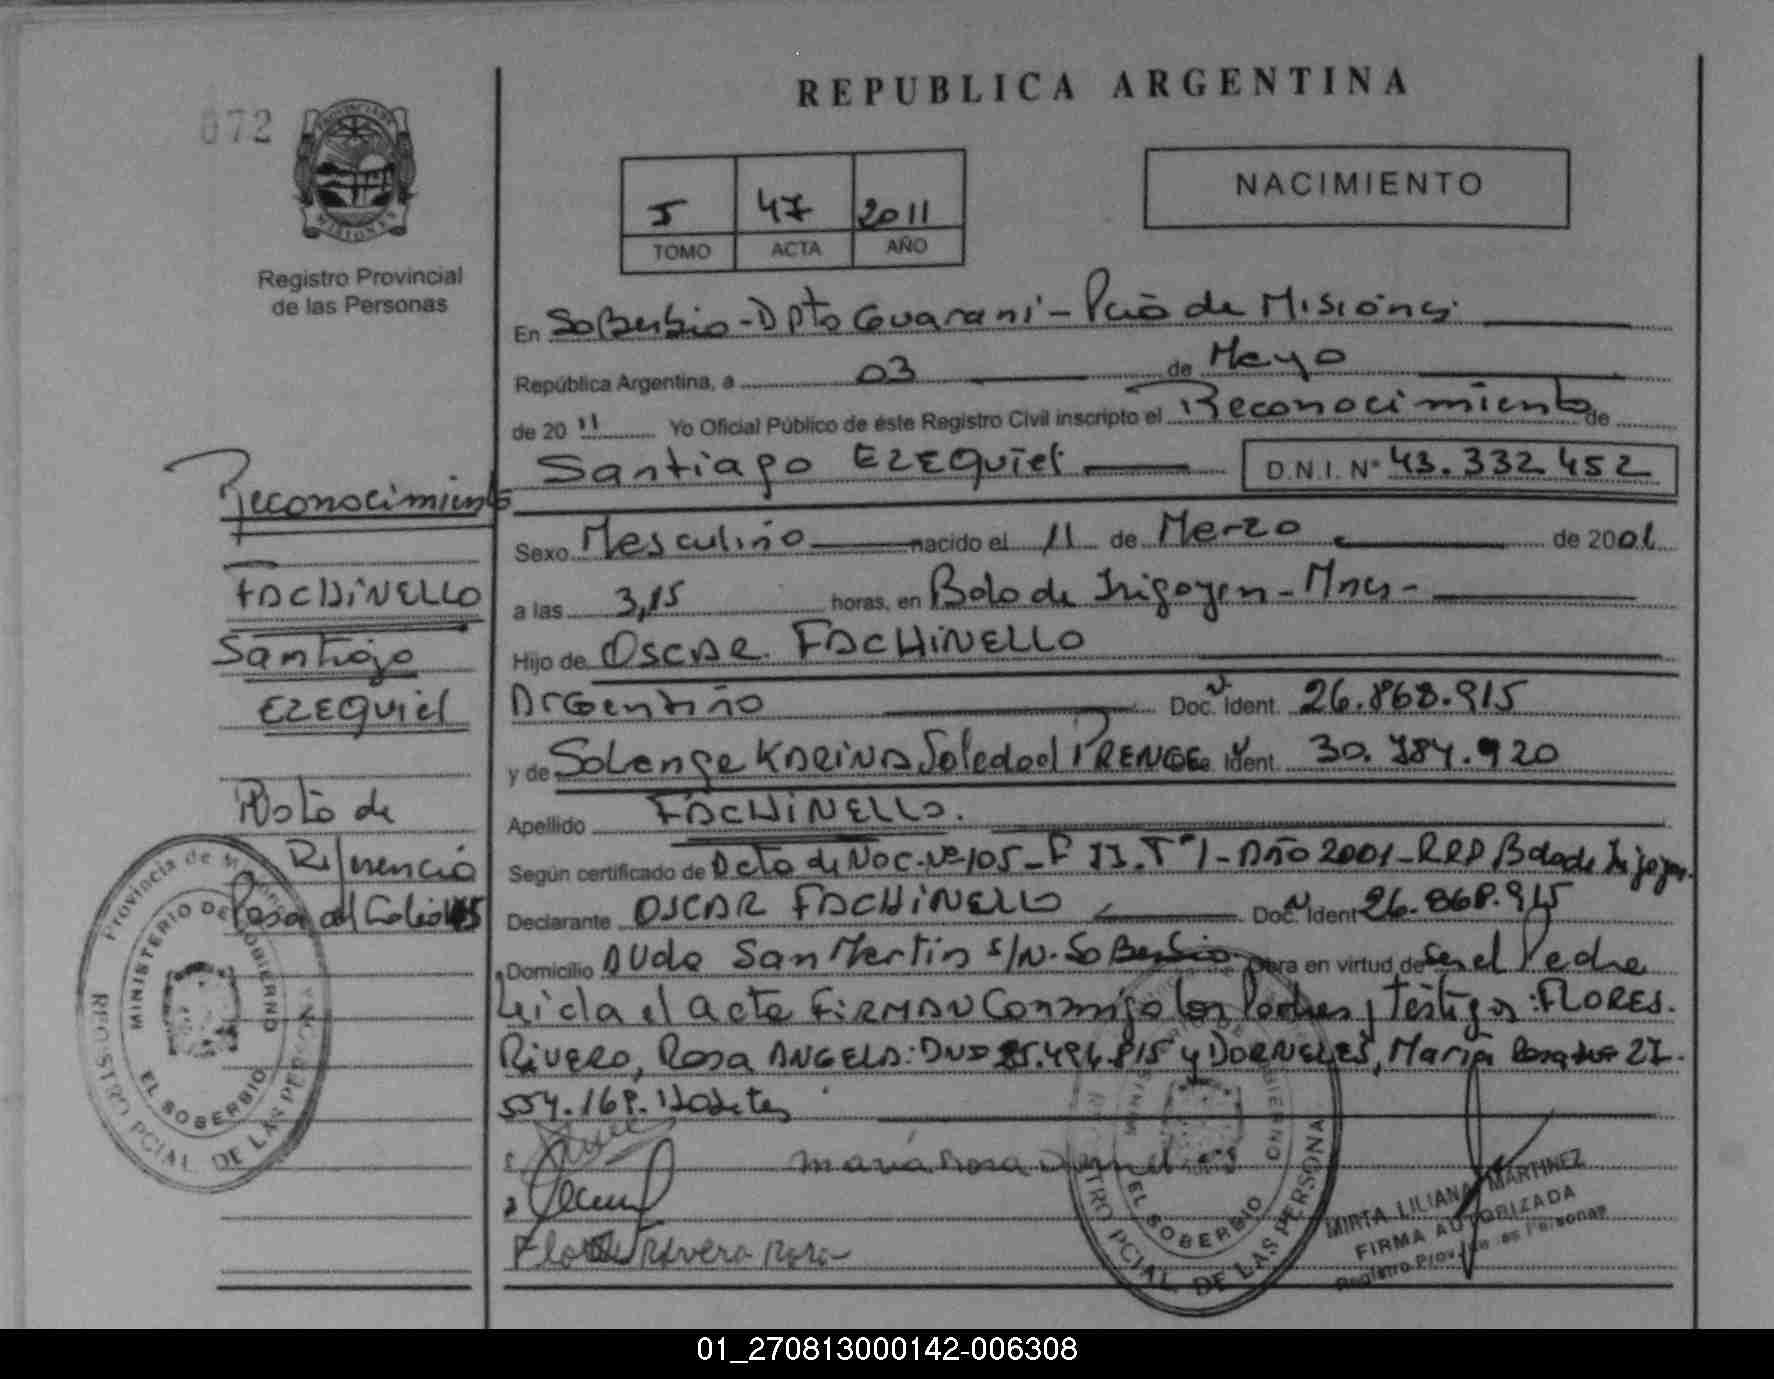 REPUBLICA ARGENTINA
072
NACIMIENTO
5 47 2011
TOMO ACTA AÑO
Registro Provincial
de las Personas
En SoBerbio - Dpto Guarani - Pcia de Misiones
República Argentina, a 03 de Mayo
de 2011 Yo Oficial Público de éste Registro Civil inscripto el Reconocimiento de
Santiago EZEQuiel D.N.I. Nº 43.332.452
Sexo Masculino nacido el 11 de Marzo de 2001
a las 3,15 horas, en Bdo de Irigoyen - Mnes -
Hijo de OSCAR FACHINELLO
Argentino Doc. Ident. 26.868.915
y de Solange KARINA Soledad PRENGE Ident. 30.784.920
Apellido FACHINELLO.
Según certificado de Acta de Nac. Nº 105 - F 53. Tº 1 - Año 2001 - RPP Bdo de Irigoyen.
Declarante OSCAR FACHINELLO Doc. Ident 26.868.915
Domicilio AVda San Martin S/N. SoBerbio obra en virtud de ser el Padre
Leida el acta FIRMAN Conmigo los Padres y Testigos: FLORES.
RIVERO, Rosa ANGELA: DNI 496.815 y DORNELES, Maria Rosa 27.
554.168.
maria Rosa Dornel
Flores Rivero Rosa
Reconocimiento
FACHINELLO
Santiago
EZEQuiel
Nota de
Referencia
Pasa al folio
Provincia de Misiones
MINISTERIO DE GOBIERNO
EL SOBERBIO
REGISTRO PCIAL. DE LAS PERSONAS
MINISTERIO DE GOBIERNO
EL SOBERBIO
REGISTRO PCIAL. DE LAS PERSONAS
MIRTA LILIANA MARTINEZ
FIRMA AUTORIZADA
Registro Prov. de las Personas
01_270813000142-006308